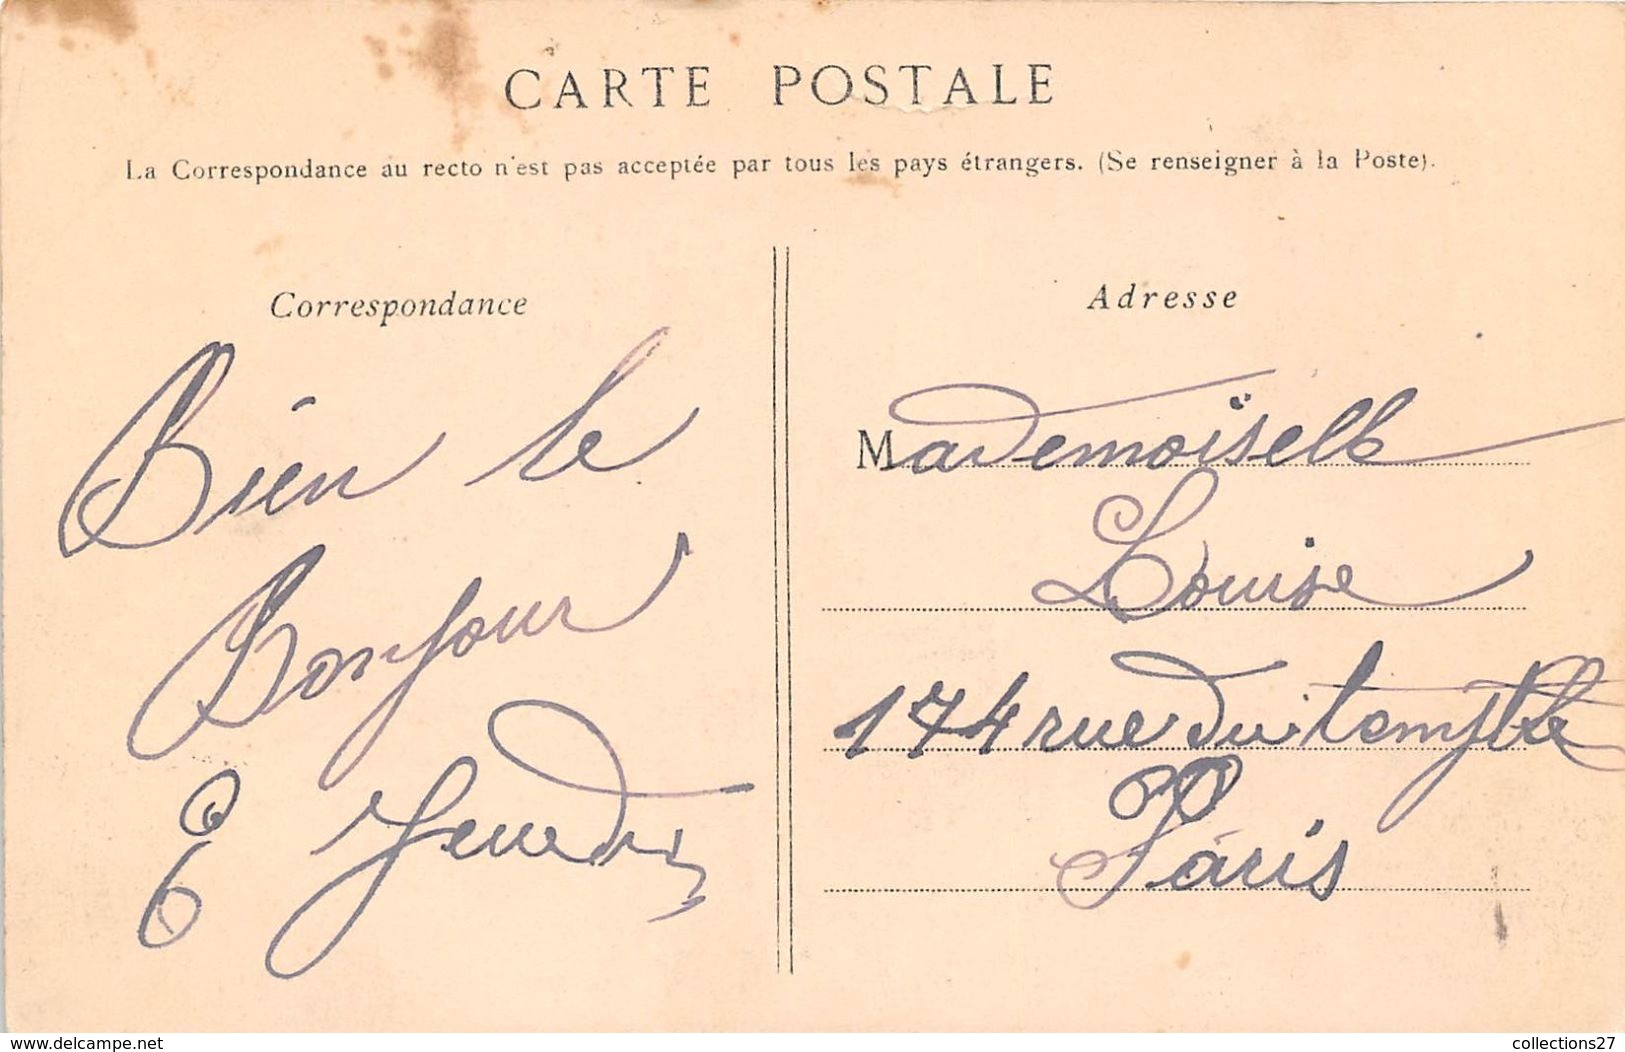 CARTE POSTALE
La Correspondance au recto n'est pas acceptée par tous les pays étrangers. (Se renseigner à la Poste).
Correspondance
Bien le
Bonjour
E
Adresse
Mademoiselle
Louise
174 rue du temple
Paris
www.delcampe.net
collections27